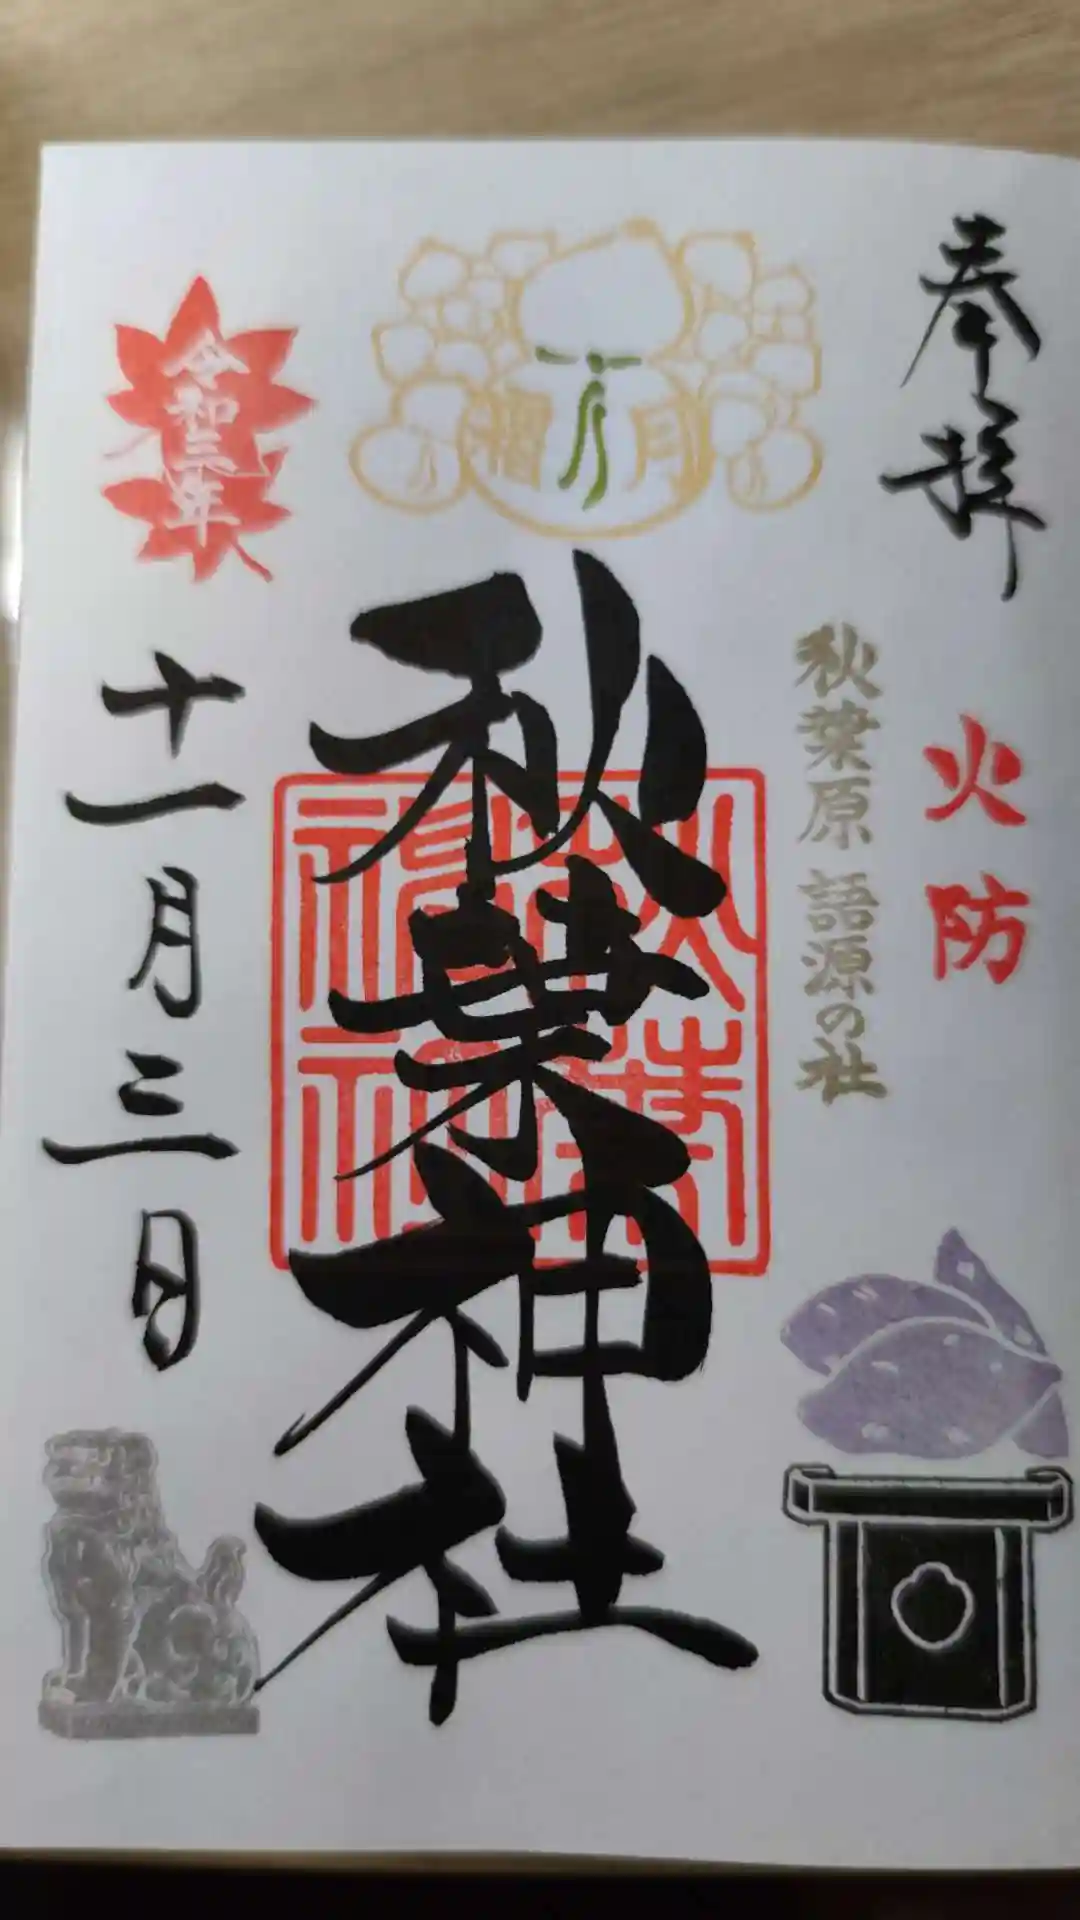 奉拝
火防
秋葉原 語源の社
霜月
秋葉神社
秋葉神社
令和三年
十一月三日